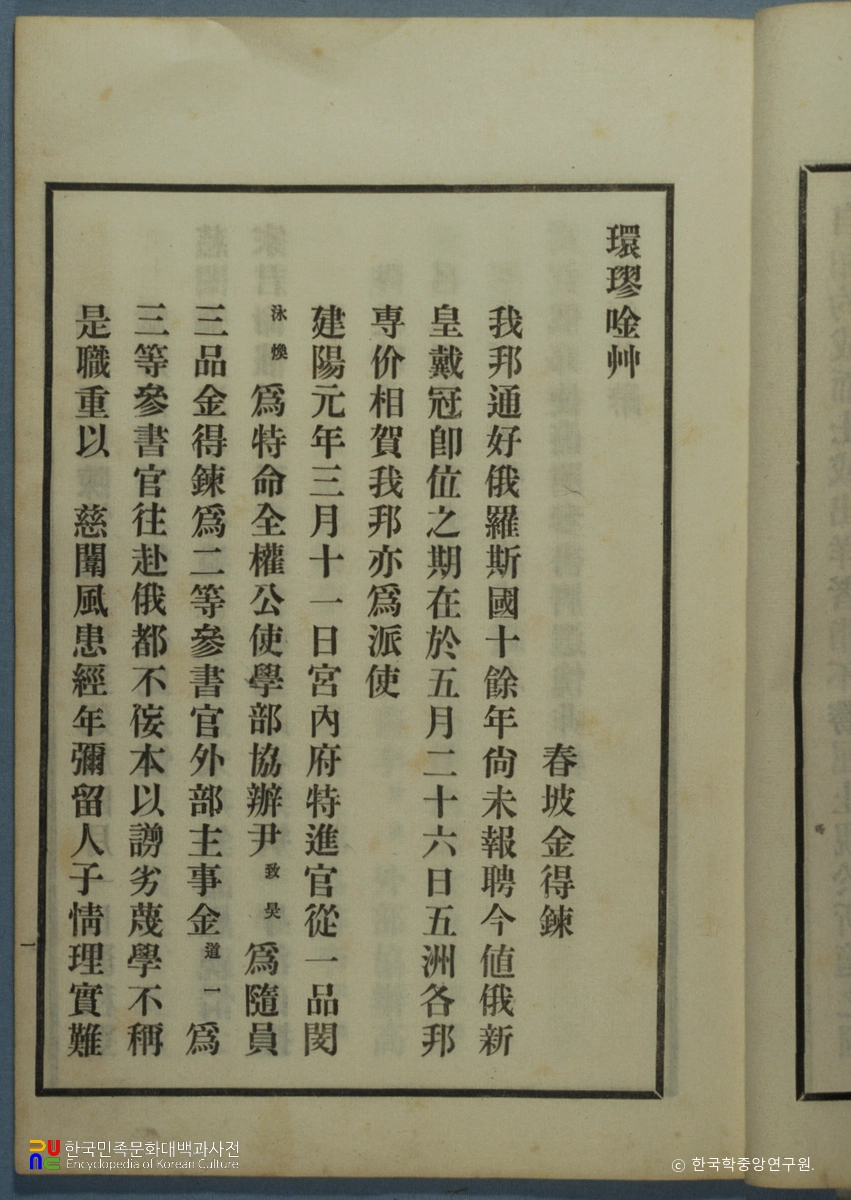 環璆唫艸
春坡金得鍊
我邦通好俄羅斯國十餘年尙未報聘今値俄新
皇戴冠卽位之期在於五月二十六日五洲各邦
専价相賀我邦亦爲派使
建陽元年三月十一日宮內府特進官從一品閔
泳煥爲特命全權公使學部協辦尹致昊爲隨員
三品金得鍊爲二等參書官外部主事金道一爲
三等參書官往赴俄都不侫本以謭劣蔑學不稱
是職重以 慈闈風患經年彌留人子情理實難
一
한국민족문화대백과사전
Encyclopedia of Korean Culture
© 한국학중앙연구원.